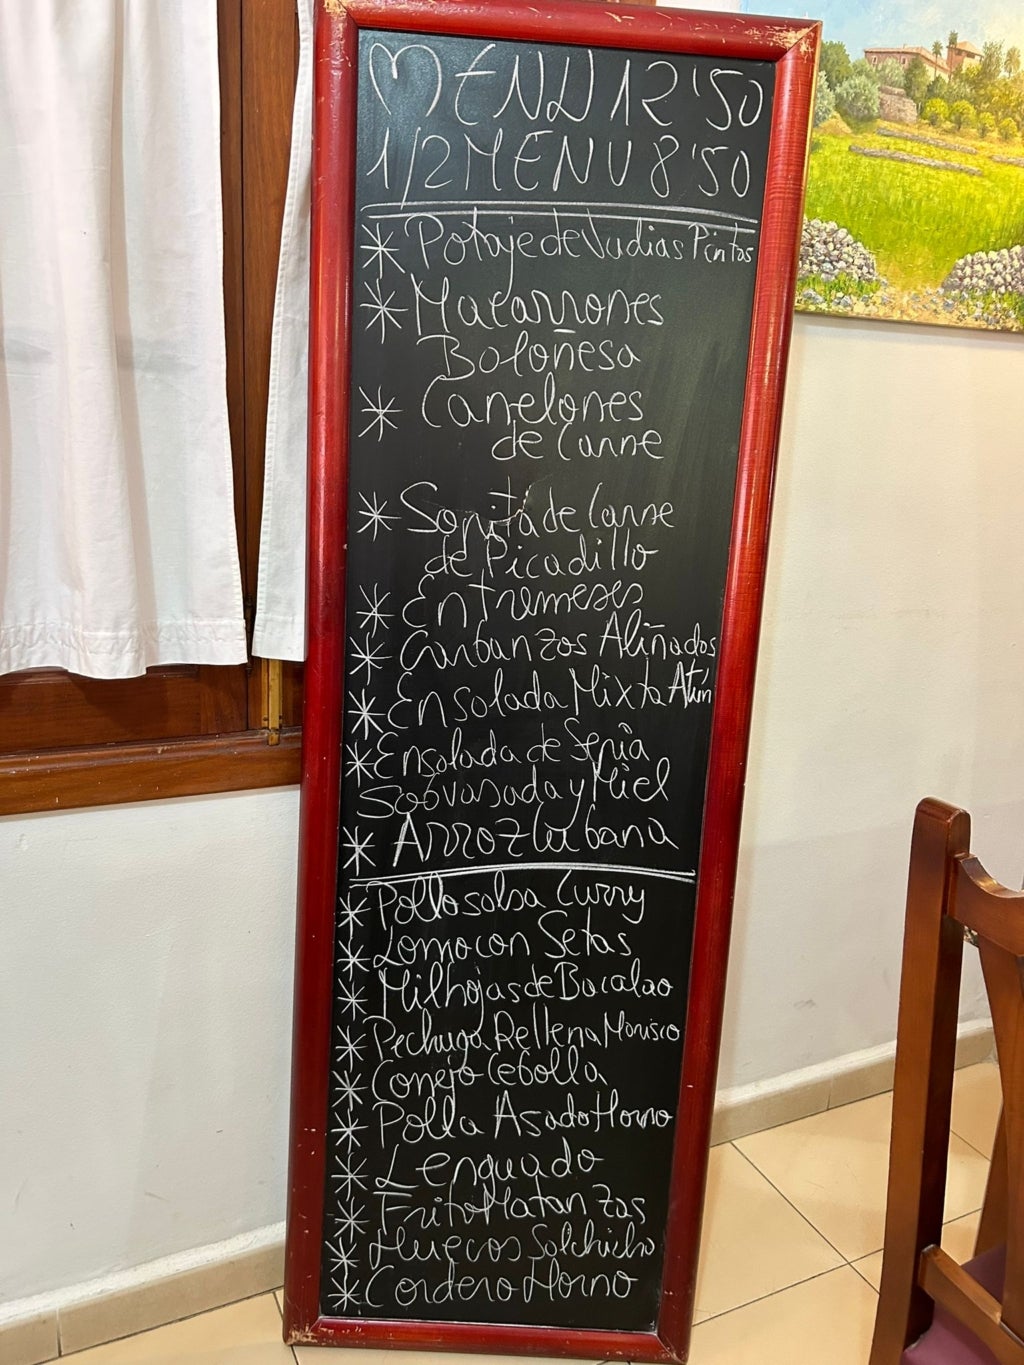 MENU 12'50
1/2 MENU 8'50
* Potaje de Judias Pintas
* Macarrones
Boloñesa
* Canelones
de Carne
* Sopita de Carne
de Picadillo
* Entremeses
* Garbanzos Aliñados
* Ensalada Mixta Atún
* Ensalada de
Sobrasada y Miel
* Arroz Cubana
* Pollo salsa Curry
* Lomo con Setas
* Milhojas de Bacalao
* Pechuga Rellena Marisco
* Conejo Cebolla
* Polla Asado Horno
* Lenguado
* Frito Matanzas
* Huevos Salchicha
* Cordero Horno